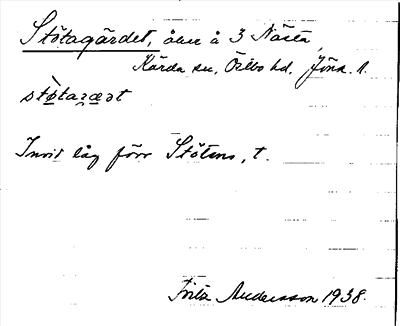 Stötagärdet, åker å 3 Nästa,
Kärda sn, Östbo hd, Jönk. l.
stø̀taʒæət
Invid låg förr Stötens, t.
Fritz Andersson 1938.